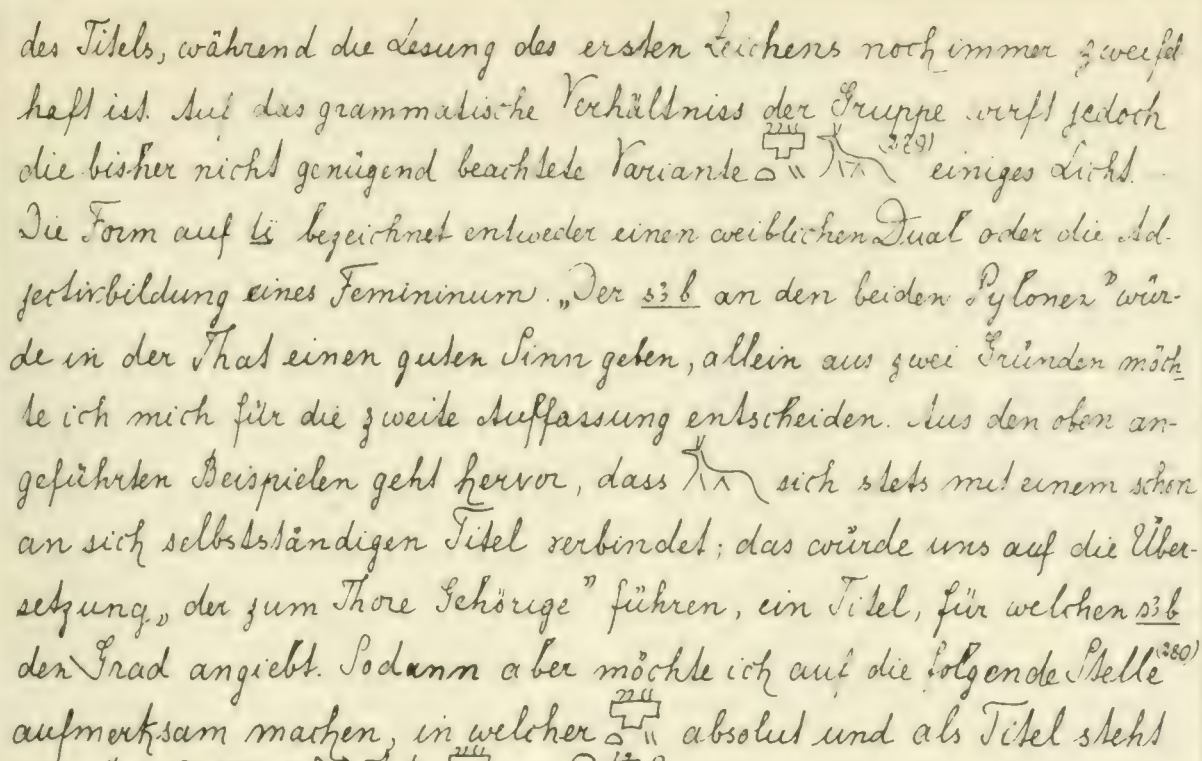 des Titels, während die Lesung des ersten Zeichens noch immer zweifel
haft ist. Auf das grammatische Verhältniss der Gruppe wirft jedoch
die bisher nicht genügend beachtete Variante (279) einiges Licht.
Die Form auf ti bezeichnet entweder einen weiblichen Dual oder die Ad-
jectivbildung eines Femininum. „Der s3b an den beiden Pylonen” wür-
de in der That einen guten Sinn geben, allein aus zwei Gründen möch
te ich mich für die zweite Auffassung entscheiden. Aus den oben an-
geführten Beispielen geht hervor, dass sich stets mit einem schon
an sich selbstständigen Titel verbindet; das würde uns auf die Über-
setzung „der zum Thore Gehörige” führen, ein Titel, für welchen s3b
den Grad angiebt. Sodann aber möchte ich auf die folgende Stelle (280)
aufmerksam machen, in welcher absolut und als Titel steht